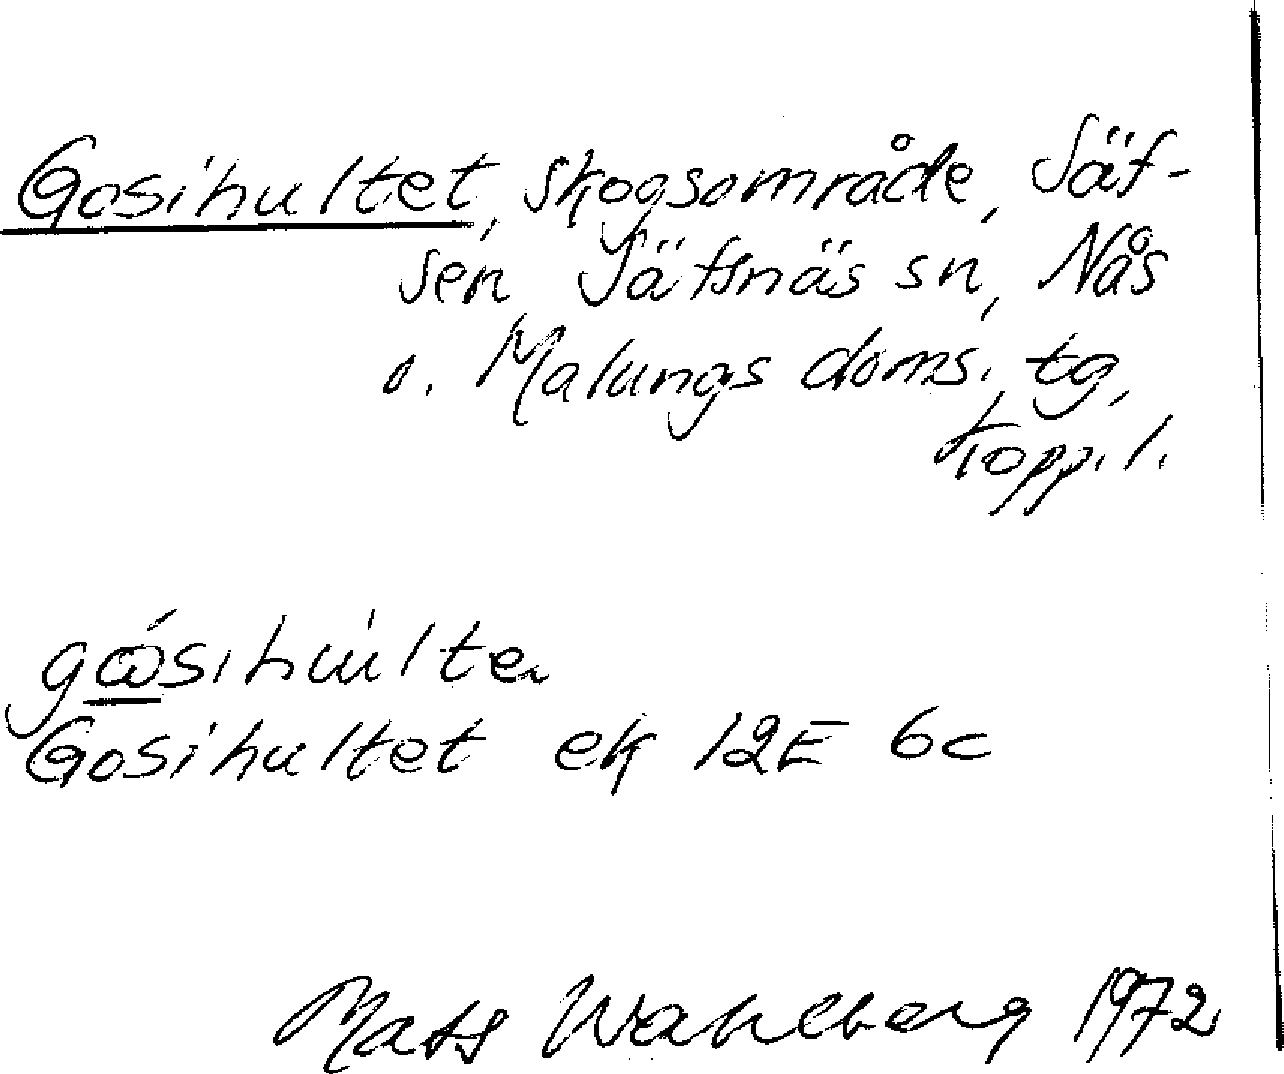 Gosihultet, skogsområde, Säf-
sen Säfsnäs sn, Nås
o. Malungs doms. tg,
Kopp. l.
Gosihultet ek 12E 6c
Mats Wahlberg 1972